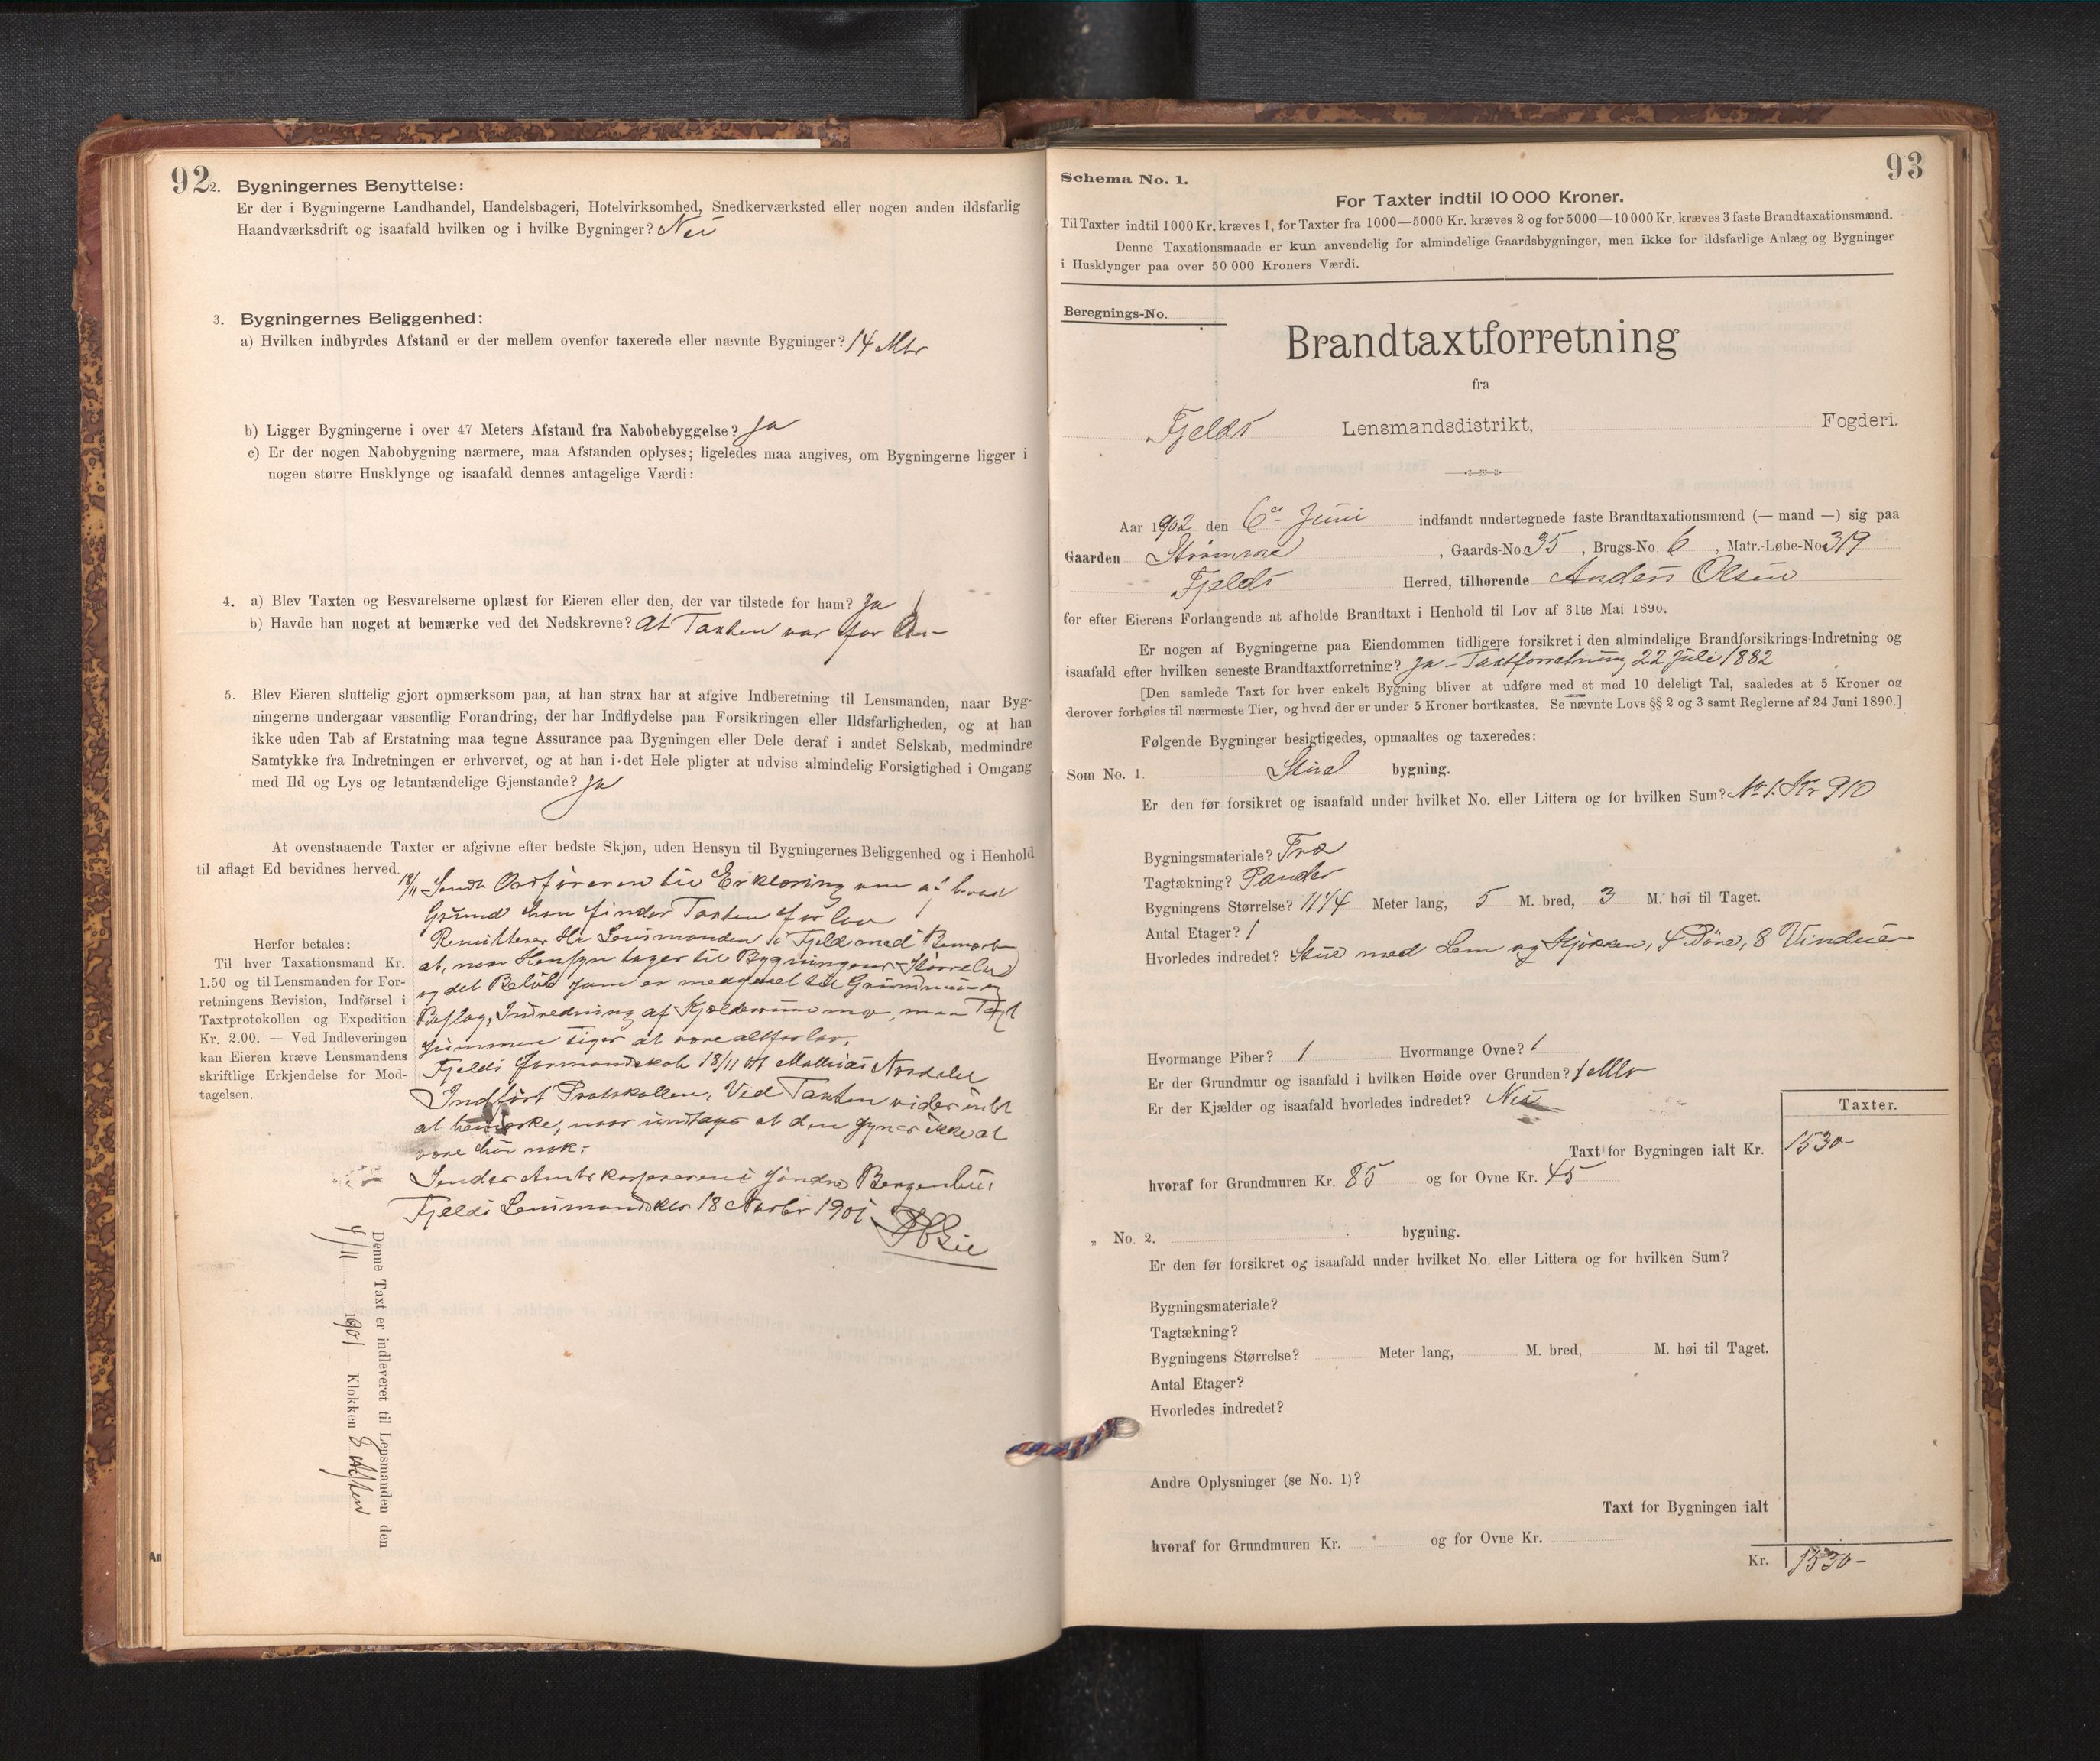 92
2. Bygningernes Benyttelse:
Er der i Bygningerne Landhandel, Handelsbageri, Hotelvirksomhed, Snedkerværksted eller nogen anden ildsfarlig
Haandværksdrift og isaafald hvilken og i hvilke Bygninger? Nei
3. Bygningernes Beliggenhed:
a) Hvilken indbyrdes Afstand er der mellem ovenfor taxerede eller nævnte Bygninger? 14 Mtr
b) Ligger Bygningerne i over 47 Meters Afstand fra Nabobebyggelse? Ja
c) Er der nogen Nabobygning nærmere, maa Afstanden oplyses; ligeledes maa angives, om Bygningerne ligger i
nogen større Husklynge og isaafald dennes antagelige Værdi:
4. a) Blev Taxten og Besvarelserne oplæst for Eieren eller den, der var tilstede for ham? Ja
b) Havde han noget at bemærke ved det Nedskrevne? At Taxten var for lav
5. Blev Eieren sluttelig gjort opmærksom paa, at han strax har at afgive Indberetning til Lensmanden, naar Byg-
ningerne undergaar væsentlig Forandring, der har Indflydelse paa Forsikringen eller Ildsfarligheden, og at han
ikke uden Tab af Erstatning maa tegne Assurance paa Bygningen eller Dele deraf i andet Selskab, medmindre
Samtykke fra Indretningen er erhvervet, og at han i det Hele pligter at udvise almindelig Forsigtighed i Omgang
med Ild og Lys og letantændelige Gjenstande? Ja
At ovenstaaende Taxter er afgivne efter bedste Skjøn, uden Hensyn til Bygningernes Beliggenhed og i Henhold
til aflagt Ed bevidnes herved.
18/11 Sendt Ordføreren til Erklæring om af hvad
Grund han finder Taxten for lav
Remitteres Hr Lensmanden i Fjeld med Bemærkn
at, naar Hensyn tages til Bygningens Størrelse
og det Beløb som er medgaaet til Grundmur og
Paslag, Indredning af Kjælderrum mv, maa Taxt
summen siges at være altfor lav.
Fjelds Formandskab 18/11 01 Mathias Nordalet
Indført Protokollen, Ved Taxten vides intet
at bemærke, naar undtages at den synes ikke at
være høi nok.
Sendes Amtskassereren i Søndre Bergenhus
Fjelds Lensmandsktr 18 Novbr 1901
Herfor betales:
Til hver Taxationsmand Kr.
1.50 og til Lensmanden for For-
retningens Revision, Indførsel i
Taxtprotokollen og Expedition
Kr. 2.00. — Ved Indleveringen
kan Eieren kræve Lensmandens
skriftlige Erkjendelse for Mod-
tagelsen.
Denne Taxt er indleveret til Lensmanden den
4/11 1901 Klokken 8 Aften
93
Schema No. 1.
For Taxter indtil 10 000 Kroner.
Til Taxter indtil 1000 Kr. kræves 1, for Taxter fra 1000—5000 Kr. kræves 2 og for 5000—10 000 Kr. kræves 3 faste Brandtaxationsmænd.
Denne Taxationsmaade er kun anvendelig for almindelige Gaardsbygninger, men ikke for ildsfarlige Anlæg og Bygninger
i Husklynger paa over 50 000 Kroners Værdi.
Beregnings-No.
Brandtaxtforretning
fra
Fjelds Lensmandsdistrikt, Fogderi.
Aar 1902 den 6te Juni indfandt undertegnede faste Brandtaxationsmænd (— mand —) sig paa
Gaarden , Gaards-No. 35 , Brugs-No. 6 , Matr.-Løbe-No. 319
Fjelds Herred, tilhørende Anders Olsen
for efter Eierens Forlangende at afholde Brandtaxt i Henhold til Lov af 31te Mai 1890.
Er nogen af Bygningerne paa Eiendommen tidligere forsikret i den almindelige Brandforsikrings-Indretning og
isaafald efter hvilken seneste Brandtaxtforretning? Ja – Taxtforretning 22 Juli 1882
[Den samlede Taxt for hver enkelt Bygning bliver at udføre med et med 10 deleligt Tal, saaledes at 5 Kroner og
derover forhøies til nærmeste Tier, og hvad der er under 5 Kroner bortkastes. Se nævnte Lovs §§ 2 og 3 samt Reglerne af 24 Juni 1890.]
Følgende Bygninger besigtigedes, opmaaltes og taxeredes:
Som No. 1. bygning.
Er den før forsikret og isaafald under hvilket No. eller Littera og for hvilken Sum? No 1. Kr 910
Bygningsmateriale? Træ
Tagtækning? Pander
Bygningens Størrelse? 11 1/4 Meter lang, 5 M. bred, 3 M. høi til Taget.
Antal Etager? 1
Hvorledes indredet? Stue med Lem og Kjøkken, 5 Døre, 8 Vinduer
Hvormange Piber? 1 Hvormange Ovne? 1
Er der Grundmur og isaafald i hvilken Høide over Grunden? 1 Mtr
Er der Kjælder og isaafald hvorledes indredet? Nei
Taxter.
Taxt for Bygningen ialt Kr. 1530-
hvoraf for Grundmuren Kr. 85 og for Ovne Kr. 45
„ No. 2. bygning.
Er den før forsikret og isaafald under hvilket No. eller Littera og for hvilken Sum?
Bygningsmateriale?
Tagtækning?
Bygningens Størrelse? Meter lang, M. bred, M. høi til Taget.
Antal Etager?
Hvorledes indredet?
Andre Oplysninger (se No. 1)?
Taxt for Bygningen ialt
hvoraf for Grundmuren Kr. og for Ovne Kr.
Kr. 1530-